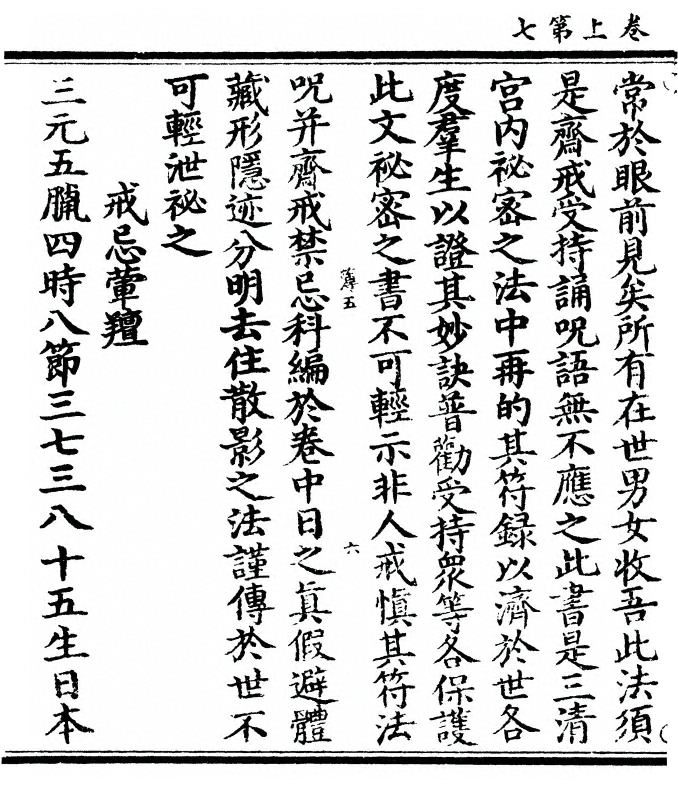 卷上第七
常於眼前見矣所有在世男女收吾此法須
是齋戒受持誦呪語無不應之此書是三清
宮内祕密之法中再的其符録以濟於世各
度羣生以證其妙訣普勸受持衆等各保護
此文祕密之書不可輕示非人戒愼其符法
薄五
六
呪并齋戒禁忌科編於卷中日之眞假避體
藏形隱迹八分明去住散影之法謹傳於世不
可輕泄祕之
戒忌葷羶
三元五臘四時八節三七三八十五生日本